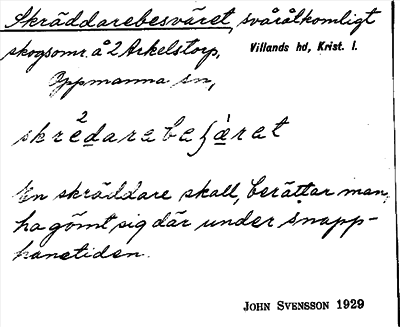 Skräddarebesväret, svåråtkomligt
skogsomr. å 2 Arkelstorp, Villands hd, Krist. l.
Oppmanna sn,
En skräddare skall, berättar man,
ha gömt sig där under snapp-
hanetiden.
JOHN SVENSSON 1929